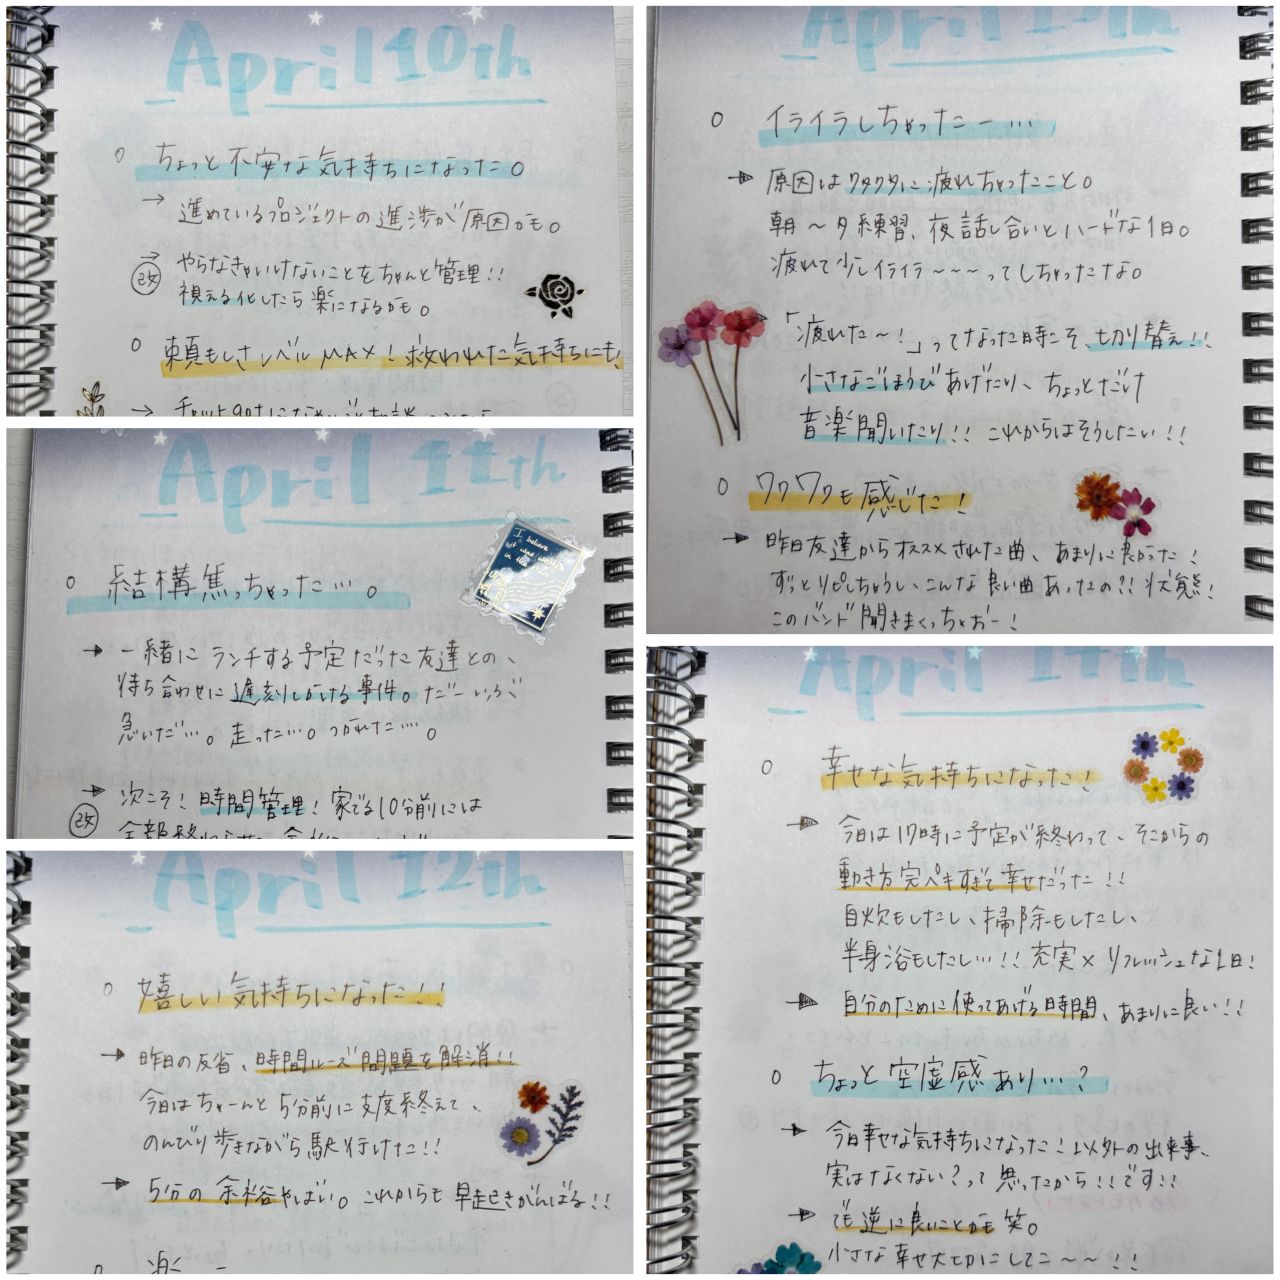 April 10th
ちょっと不安な気持ちになった。
→ 進めているプロジェクトの進渉が原因かも。
→ やらなきゃいけないことをちゃんと管理!!
改 視える化したら楽になるかも。
頼もしさレベルMAX!救われた気持ちにも!
April 11th
結構焦っちゃった…。
→ 一緒にランチする予定だった友達との、
待ち合わせに遅刻しかける事件。だーいぶ
急いだ…。走った…。つかれた…。
→ 次こそ!時間管理!家でる10分前には
改
April 12th
嬉しい気持ちになった!!
→ 昨日の反省、時間ルーズ問題を解消!!
今日はちゃーんと5分前に支度終えて、
のんびり歩きながら駅行けた!!
→ 5分の余裕やばい。これからも早起きがんばる!!
April 13th
イライラしちゃったー…
→ 原因はクタクタに疲れちゃったこと。
朝〜夕練習、夜話し合いとハードな1日。
疲れて少しイライラ〜〜〜ってしちゃったな。
→ 「疲れた〜!」ってなった時こそ、切り替え!!
小さなごほうびあげたり、ちょっとだけ
音楽聞いたり!!これからはそうしたい!!
ワクワクも感じた!
→ 昨日友達からオススメされた曲、あまりに良かった!
ずっとリピしちゃうし、こんな良い曲あったの?!状態!
このバンド聞きまくっちゃおー!
April 14th
幸せな気持ちになった!
→ 今日は17時に予定が終わって、そこからの
動き方完ペキすぎて幸せだった!!
自炊もしたし、掃除もしたし、
半身浴もしたし…!!充実×リフレッシュな1日!
→ 自分のために使ってあげる時間、あまりに良い!!
ちょっと空虚感あり…?
→ 今日幸せな気持ちになった!以外の出来事、
実はなくない?って思ったから!!です!!
→ でも逆に良いことかも笑。
小さな幸せ大切にしてこ〜〜!!